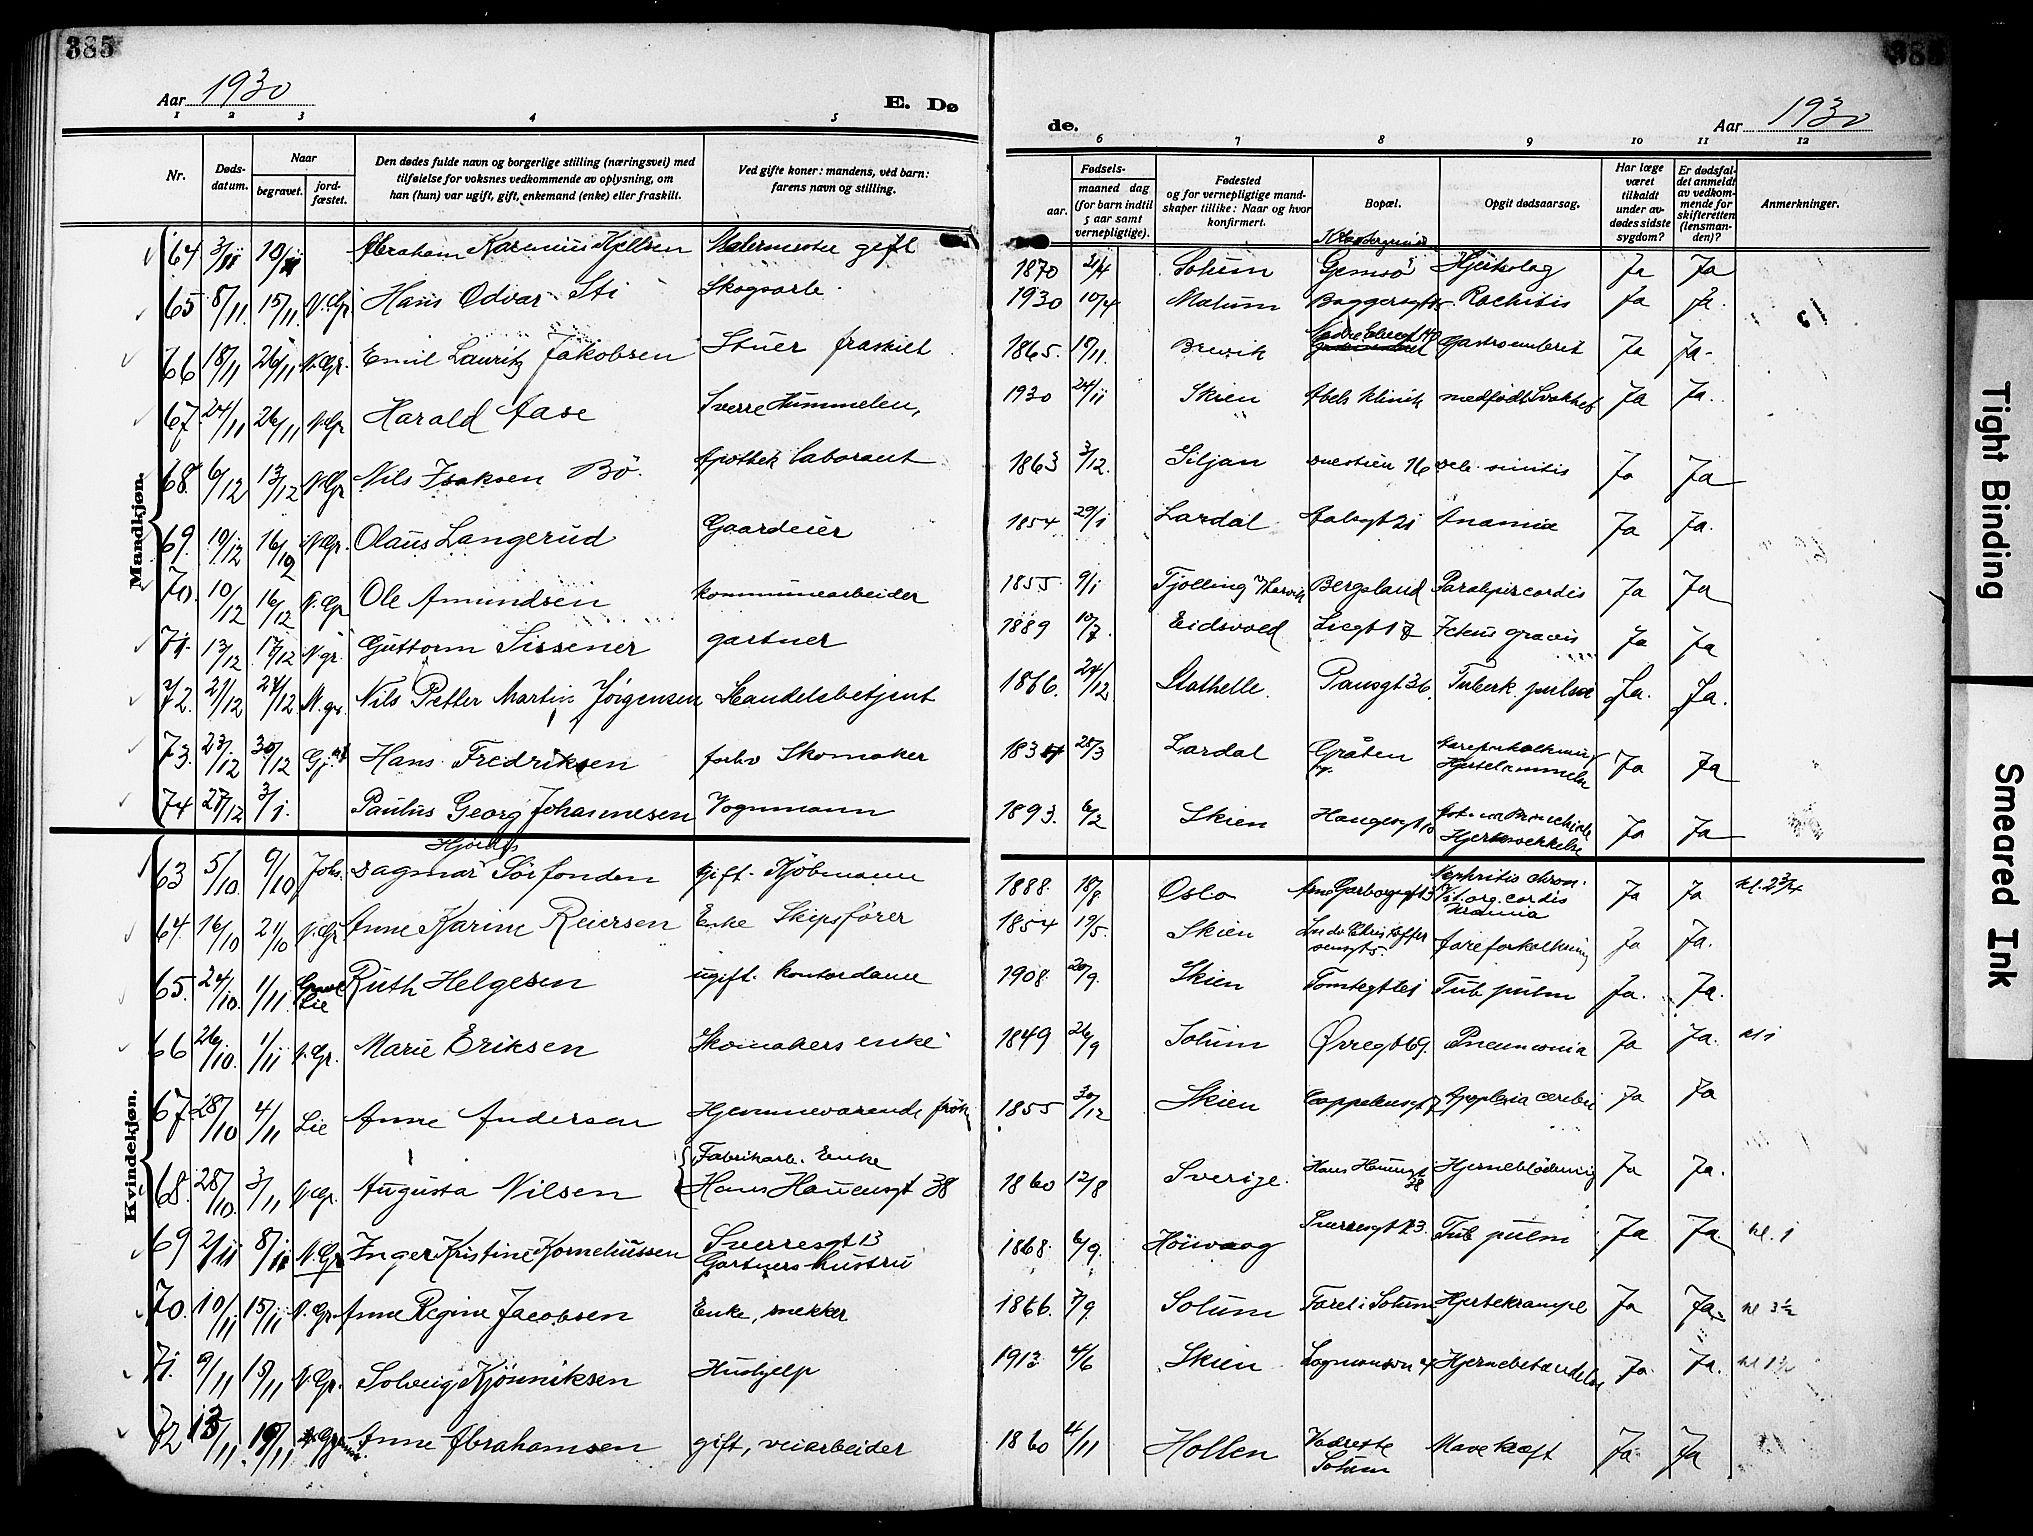 385
Aar 1930
E. Dø
1 2 3 4 5
Nr.
Døds-
datum.
Naar
begravet.
jord-
fæstet.
Den dødes fulde navn og borgerlige stilling (næringsvei) med
tilføielse for voksnes vedkommende av oplysning, om
han (hun) var ugift, gift, enkemand (enke) eller fraskilt.
Ved gifte koner: mandens, ved barn:
farens navn og stilling.
Mandkjøn.
64 3/11 10/11 Abraham Rasmus Kjellsen Malermester gift
65 8/11. 15/11. N. Gr. Hans Odvar Sti Skogsarb.
66 18/11 26/11 N. Gr. Emil Lauritz Jakobsen Stuer fraskilt
67. 24/11 26/11 N. Gr Harald Aase Sverre Hummelen,
68. 6/12 13/12 N. Gr Nils Isaksen Bö. Apothek laborant
69. 10/12 16/12 N. Gr. Olaus Langerud Gaardeier
70. 10/12 16/12 N. Gr Ole Amundsen kommunearbeider
71. 13/12 17/12 N. gr. Guttorm Sissener gartner
72. 21/12 24/12 N. gr. Nils Petter Martin Jörgensen Handelsbetjent
73. 23/12 30/12 Gj. Hans Fredriksen forhv Skomaker
74 27/12 3/1. Paulus Georg Johannesen Vognmann
Kvindekjøn.
Hjördis
63 5/10. 9/10 Johs. Dagmar Sörfonden gift. Kjöbmann
64. 16/10 21/10 N. Gr Anne Karine Reiersen Enke Skipsförer
65. 24/10. 1/11 Lie Ruth Helgesen ugift. kontordame
66 26/10. 1/11 N. Gr. Marie Eriksen Skomakers enke
67. 28/10 4/11 Lie Anne Andersen Hjemmeværende frök
68. 28/10. 3/11 N. Gr. Augusta Nilsen Fabrikarb. Enke
Hans Hauensgt 38
69 2/11 8/11 N. Gr Inger Kristine Korneliussen Sverresgt 13
Gartners hustru
70. 10/11 15/11 N. Gr. Anne Regine Jacobsen Enke, snekker
71. 9/11 15/11 N. Gr. Solveig Kjönniksen Hushjelp
72 13/11 19/11 Anne Abrahamsen gift, veiarbeider
385
de.
Aar 1930
6 7 8 9 10 11 12
Fødsels-
aar.
maaned dag
(for barn indtil
5 aar samt
vernepligtige).
Fødested
og for vernepligtige mand-
skaper tillike: Naar og hvor
konfirmert.
Bopæl.
Opgit dødsaarsag.
Har læge
været
tilkaldt
under av-
dødes sidste
sygdom?
Er dødsfal-
det anmeldt
av vedkom-
mende for
skifteretten
(lensman-
den)?
Anmerkninger.
1870 2/4 Solum Gemsö Hjerteslag Ja Ja
1930 10/4 Mælum Baggersgt Rachitis Ja Ja.
1865. 10/11. Brevik Gastroenterit Ja Ja
1930 24/11 Skien Abels klinik medfødt Svakhet Ja Ja.
1863 3/12. Siljan Duestien 16 Ja Ja
1854 29/1 Lardal Aalsgt 21 Anæmia Ja Ja.
1855 9/1 Tjölling Bergsland Paralysis cordis Ja Ja
1889 10/7. Eidsvold Liegt 17 Icterus gravis Ja Ja
1866. 24/12 Stathelle. Pausgt 36. Tuberk. pulm Ja. Ja.
28/3 Lardal Gråten Åreforkalkning
Hjertelammelse Ja Ja
1893. 6/2 Skien Haugesgt Hjertesvekkelse Ja Ja
1888. 18/8 Oslo Arne Garborgsgt 3 Nephritis chron.
Vit. org. cordis
Uræmia Ja Ja kl. 2 3/4
1854 19/5. Skien Linds Christoffer
sensgt 5. Åreforkalkning Ja Ja.
1908. 20/9. Skien Tomtegt Tub pulm Ja. Ja.
1849 26/9 Solum Øvregt 69. Pneumonia Ja Ja. kl 1
1855 30/12 Skien Cappelensgt 7 Apoplexia cerebri Ja Ja
1860 12/8 Sverige. Hans Hauensgt
38 Hjerneblödning Ja Ja.
1868. 6/9. Höivaag Sverresgt 13. Tub pulm Ja Ja kl. 1
1866. 7/9. Solum Farel i Solum Hjertekrampe Ja Ja kl 3½
1913 4/6 Skien Lagmanson 4 Hjernebetændelse Ja Ja. kl 1½
1860 4/11 Hollen Vadrette
Solum Mavekræft Ja Ja
Tight Binding
Smeared Ink